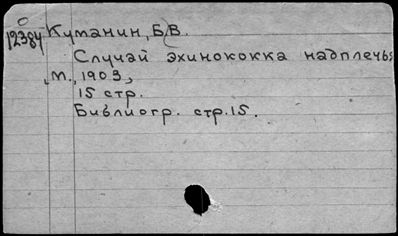 12384 Куманин, Б.В.
Случай эхинококка надплечья
М., 1903,
15 стр.
Библиогр. стр. 15.